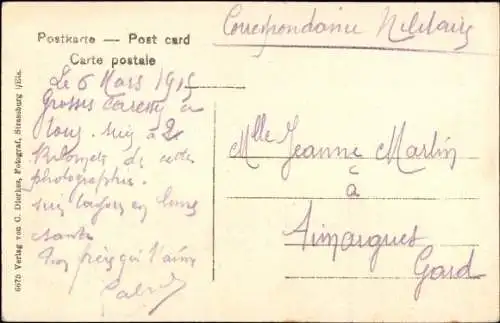 Correspondance Militaire
Postkarte — Post card
Carte postale
Le 6 Mars 1915
Grosses Caresses à
tous. suis à 2
Kilomets de cette
photographie.
suis toujours en bonne
santé
Ton frère qui t'aime
Mlle Jeanne Martin
à
Aimargues
Gard
6675 Verlag von C. Dierkes, Fotograf, Strassburg i/Els.